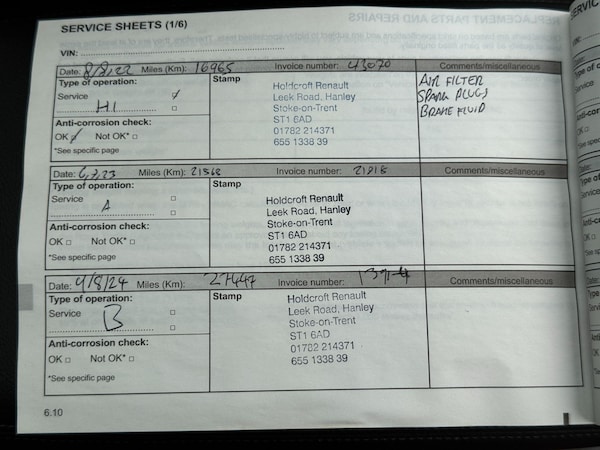 SERVICE SHEETS (1/6)
VIN:
Date: 8/8/22 Miles (Km): 16965 Invoice number: 43070 Comments/miscellaneous
Type of operation: Stamp
Service
H1
Anti-corrosion check:
OK Not OK*
*See specific page
Holdcroft Renault
Leek Road, Hanley
Stoke-on-Trent
ST1 6AD
01782 214371
655 1338 39
AIR FILTER
SPARK PLUGS
BRAKE FLUID
Date: Miles (Km): 21568 Invoice number: Comments/miscellaneous
Type of operation: Stamp
Service
A
Anti-corrosion check:
OK Not OK*
*See specific page
Holdcroft Renault
Leek Road, Hanley
Stoke-on-Trent
ST1 6AD
01782 214371
655 1338 39
Date: 9/8/24 Miles (Km): 27447 Invoice number: Comments/miscellaneous
Type of operation: Stamp
Service
B
Anti-corrosion check:
OK Not OK*
*See specific page
Holdcroft Renault
Leek Road, Hanley
Stoke-on-Trent
ST1 6AD
01782 214371
655 1338 39
6.10